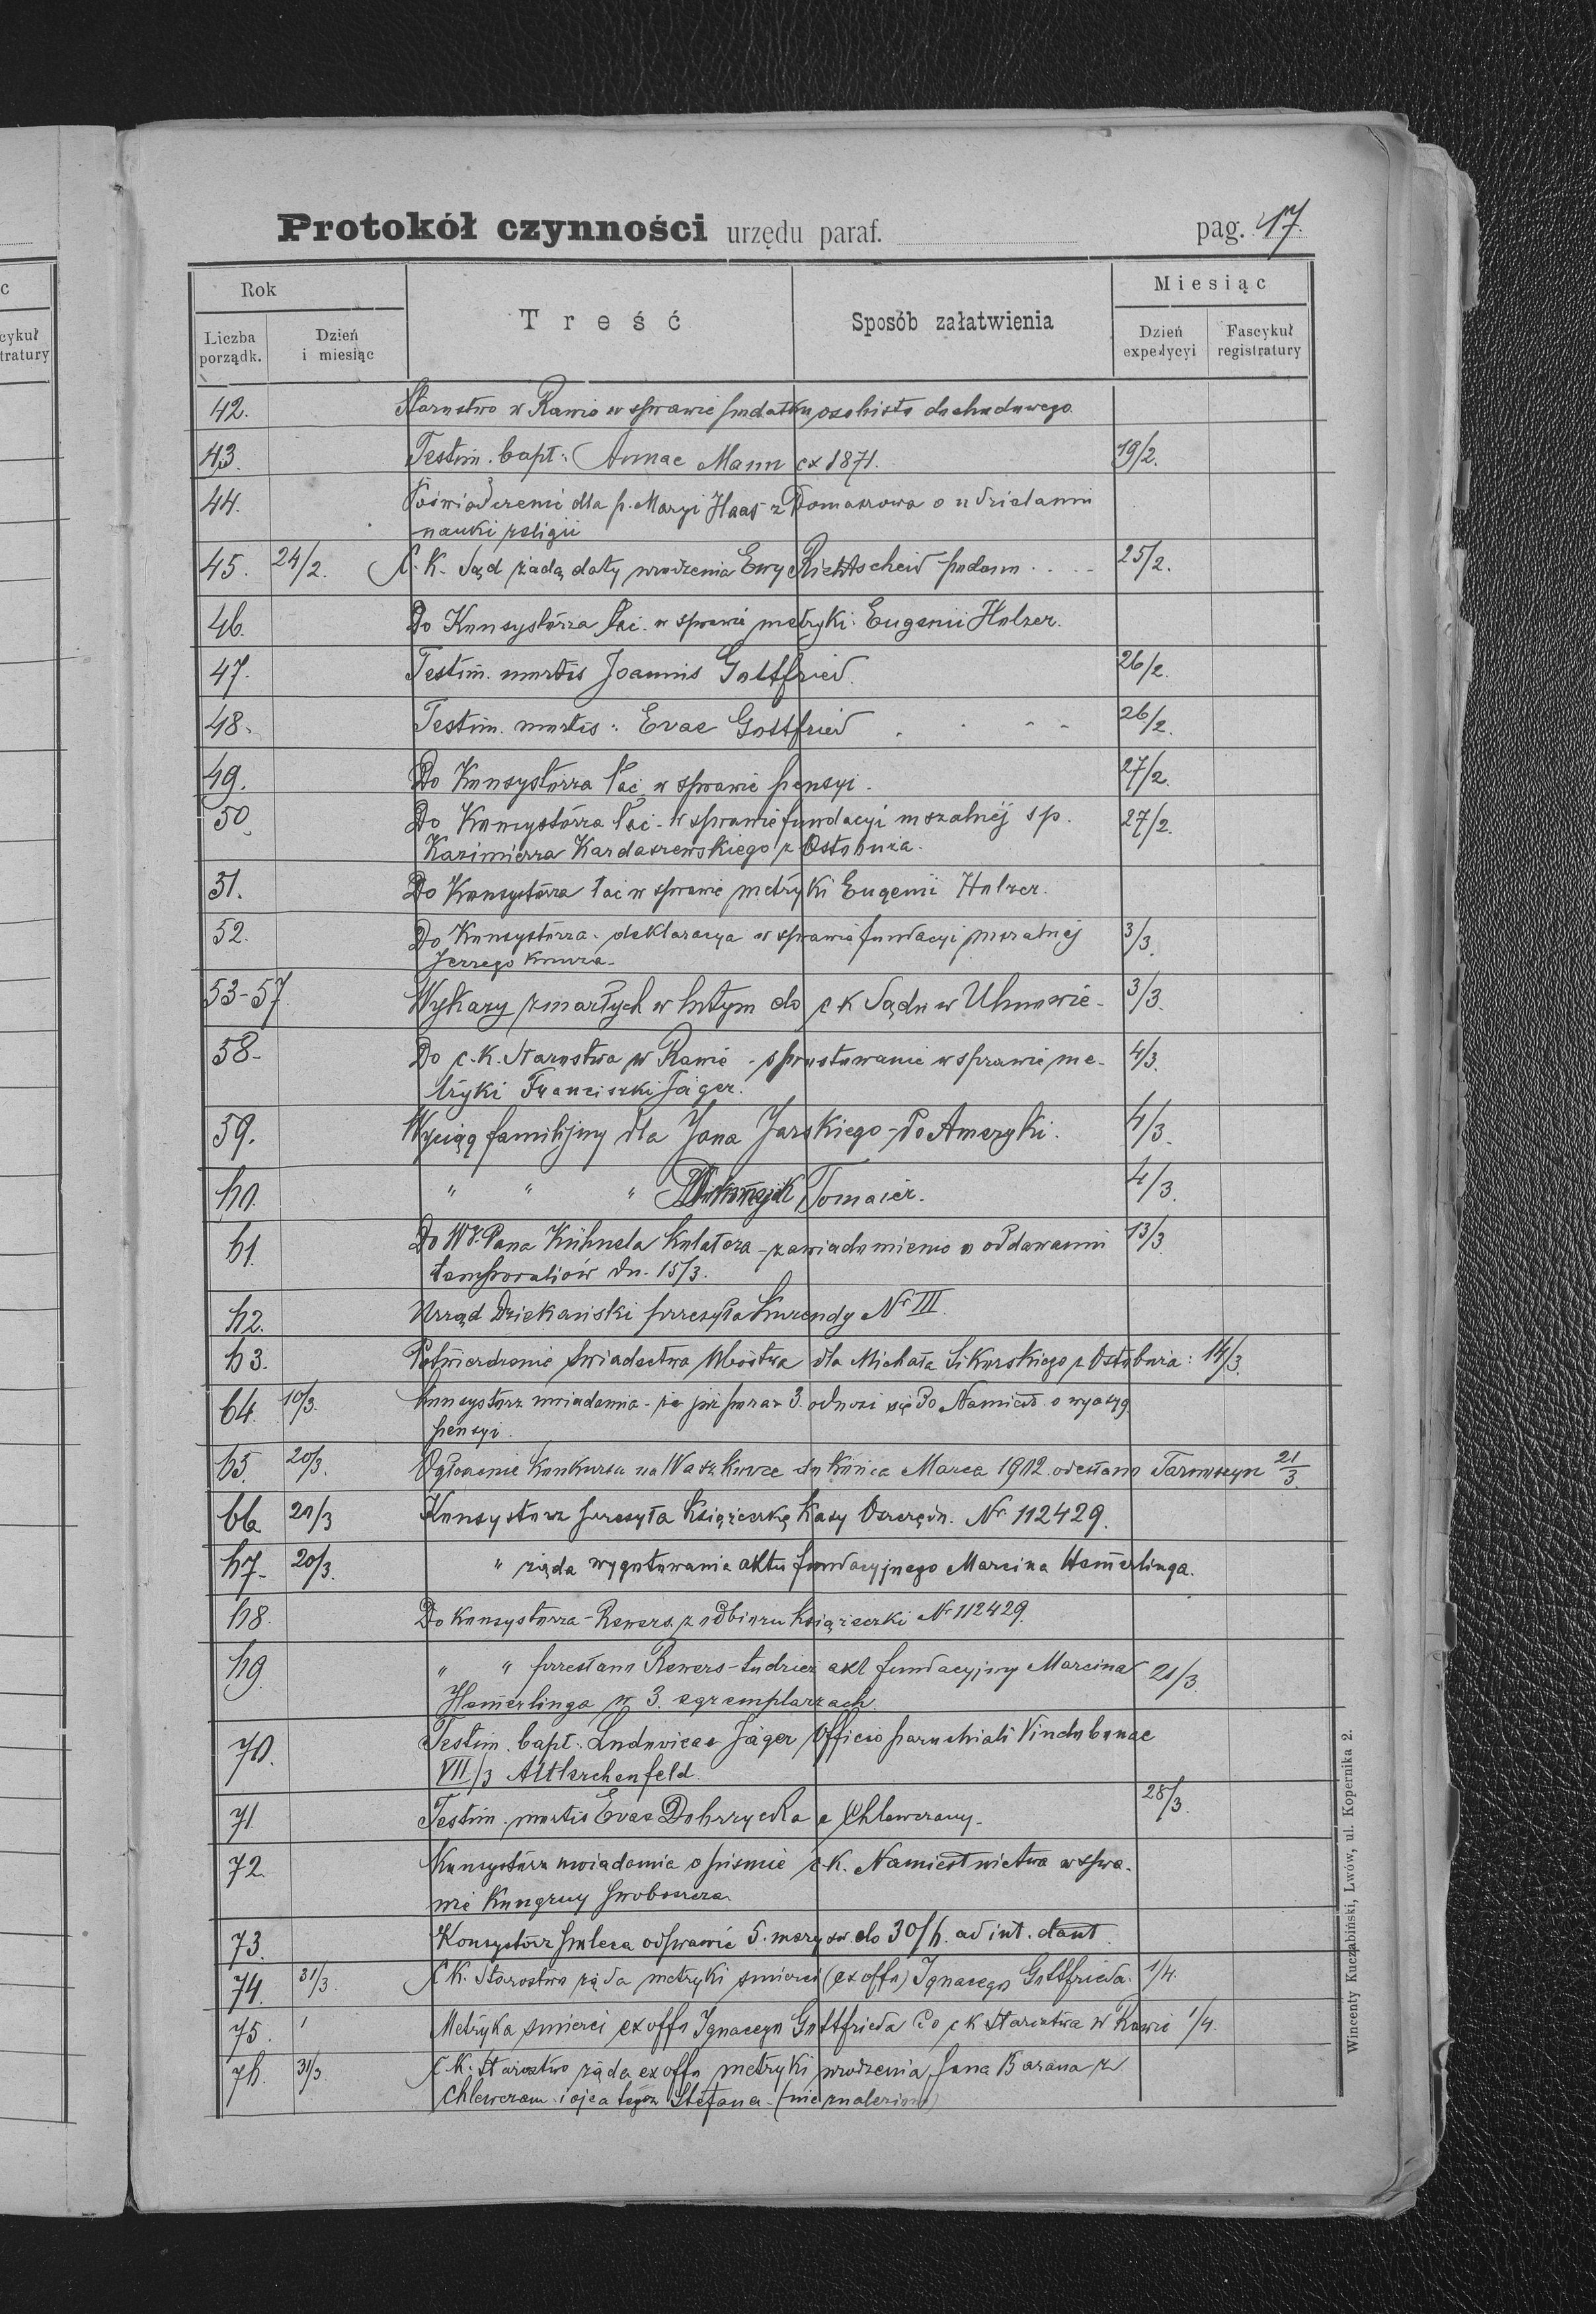 c
cykuł
tratury
Protokół czynności urzędu paraf. pag. 17.
Rok
Treść
Sposób załatwienia
Miesiąc
Liczba porządk.
Dzień i miesiąc
Dzień expedycyi
Fascykuł registratury
42. Starostwo w Rawie w sprawie podatku osobisto dochodowego
43. Testim. bapt: Annae Mann ex 1871. 19/2.
44. Poświadczenie dla p. Maryi Haas z Domaszowa o udzielaniu
nauki religii
45. 24/2. C. K. Sąd żąda daty urodzenia Ewy podano 25/2.
46. Do Konsystorza łac. w sprawie metryki Eugenii Holzer.
47. Testim. mortis Joannis Gottfried. 26/2.
48. Testim. mortis: Evae Gottfried 26/2.
49. Do Konsystorza łac. w sprawie pensyi. 27/2.
50. Do Konsystórza łac. w sprawie fundacyi mszalnej sp. 27/2.
Kazimierza Kardaszewskiego z Ostobuża.
51. Do Konsystórza łac w sprawie metryki Eugenii Holzer.
52. Do Konsystórza. deklaracya w sprawie fundacyi mszalnej 3/3.
Jerzego
53-57. Wykazy zmarłych w lutym do c k Sądu w Uhnowie - 3/3.
58. Do c. K. Starostwa w Rawie - sprostowanie w sprawie me- 4/3.
tryki Franciszki Jäger.
59. Wyciąg familijny dla Jana Jarskiego - do Ameryki. 4/3.
60. " " " Tomaier. 4/3.
61. Do WP. Pana Kühnela Kolatora - zawiadomienie o oddawaniu 13/3.
temporaliów dn. 15/3.
62. Urząd Dziekański przesyła Kurendy Nr III.
63. Potwierdzenie świadectwa ubóstwa dla Michała Sikorskiego z Ostobuża: 14/3.
64. 10/3. Konsystorz uwiadamia - że już poraz 3. odnosi się do Namiest. o wyasyg
pensyi.
65. 20/3. Ogłoszenie Konkursu na do końca Marca 1902. odesłano Tarnoszyn 21/3.
66. 20/3 Konsystorz przesyła Książeczkę Kasy Oszczędn. Nr 112429.
67. 20/3. " żąda wygotowania aktu fundacyjnego Marcina Hem̄erlinga.
68. Do Konsystorza - Rewers z odbioru książeczki Nr 112429.
69. " " przesłano Rewers - tudzież akt fundacyjny Marcina 21/3.
Hem̄erlinga w 3. egzemplarzach.
70. Testim. bapt: Ludovicae Jäger Officio parochiali Vindobonae
VII/3 Altlerchenfeld.
71. Testim. mortis Evae Dobrzycka e Chlewczany. 28/3.
72. Konsystórz uwiadamia o piśmie c. K. Namiestnictwa w spra-
wie Kongruy proboszcza.
73. Konsystórz poleca odprawić 5. mszy św. do 30/6. ad int. dant.
74. 31/3. C K. Starostwo żąda metryki śmierci (ex offo) Ignacego Gottfrieda. 1/4.
75. Metryka śmierci ex offo Ignacego Gottfrieda do c k Starostwa w Rawie 1/4.
76. 31/3. C K. Starostwo żąda ex offo metryki urodzenia Jana Barana z
Chlewczan i ojca tegoż Stefana - (nie znaleziono)
Wincenty Kuczabiński, Lwów, ul. Kopernika 2.